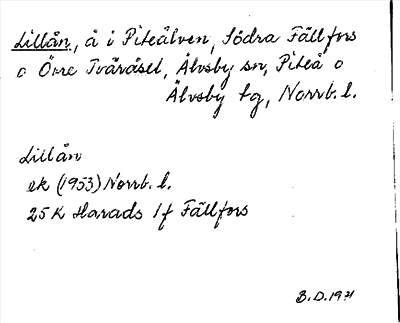 Lillån, å i Piteälven, Södra Fällfors
o Övre Tväråsel, Älvsby sn, Piteå o
Älvsby tg, Norrb. l.
Lillån
ek (1953) Norrb. l.
25 K Harads 1f Fällfors
B. D. 1971